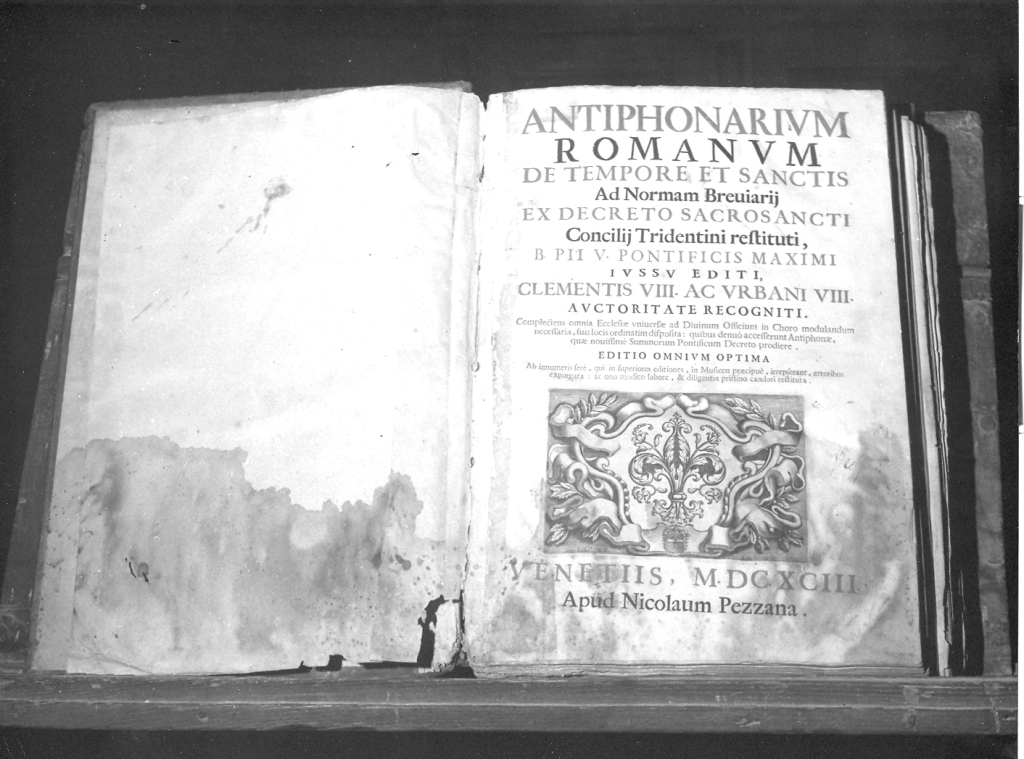 ANTIPHONARIVM
ROMANVM
DE TEMPORE ET SANCTIS
Ad Normam Breuiarij
EX DECRETO SACROSANCTI
Concilij Tridentini reſtituti,
B. PII V. PONTIFICIS MAXIMI
IVSSV EDITI,
CLEMENTIS VIII. AC VRBANI VIII.
AVCTORITATE RECOGNITI.
Complectens omnia Eccleſiæ vniuerſæ ad Diuinum Officium in Choro modulandum
neceſſaria, ſuis locis ordinatim diſpoſita: quibus denuò acceſſerunt Antiphonæ,
quæ nouiſſimè Summorum Pontificum Decreto prodiere.
EDITIO OMNIVM OPTIMA
Ab innumeris ferè, qui in ſuperiores editiones, in Muſicen præcipuè, irrepſerant, erroribus
expurgata: ac non modico labore, & diligentia priſtino candori reſtituta.
VENETIIS, M.DCXCIII.
Apud Nicolaum Pezzana.